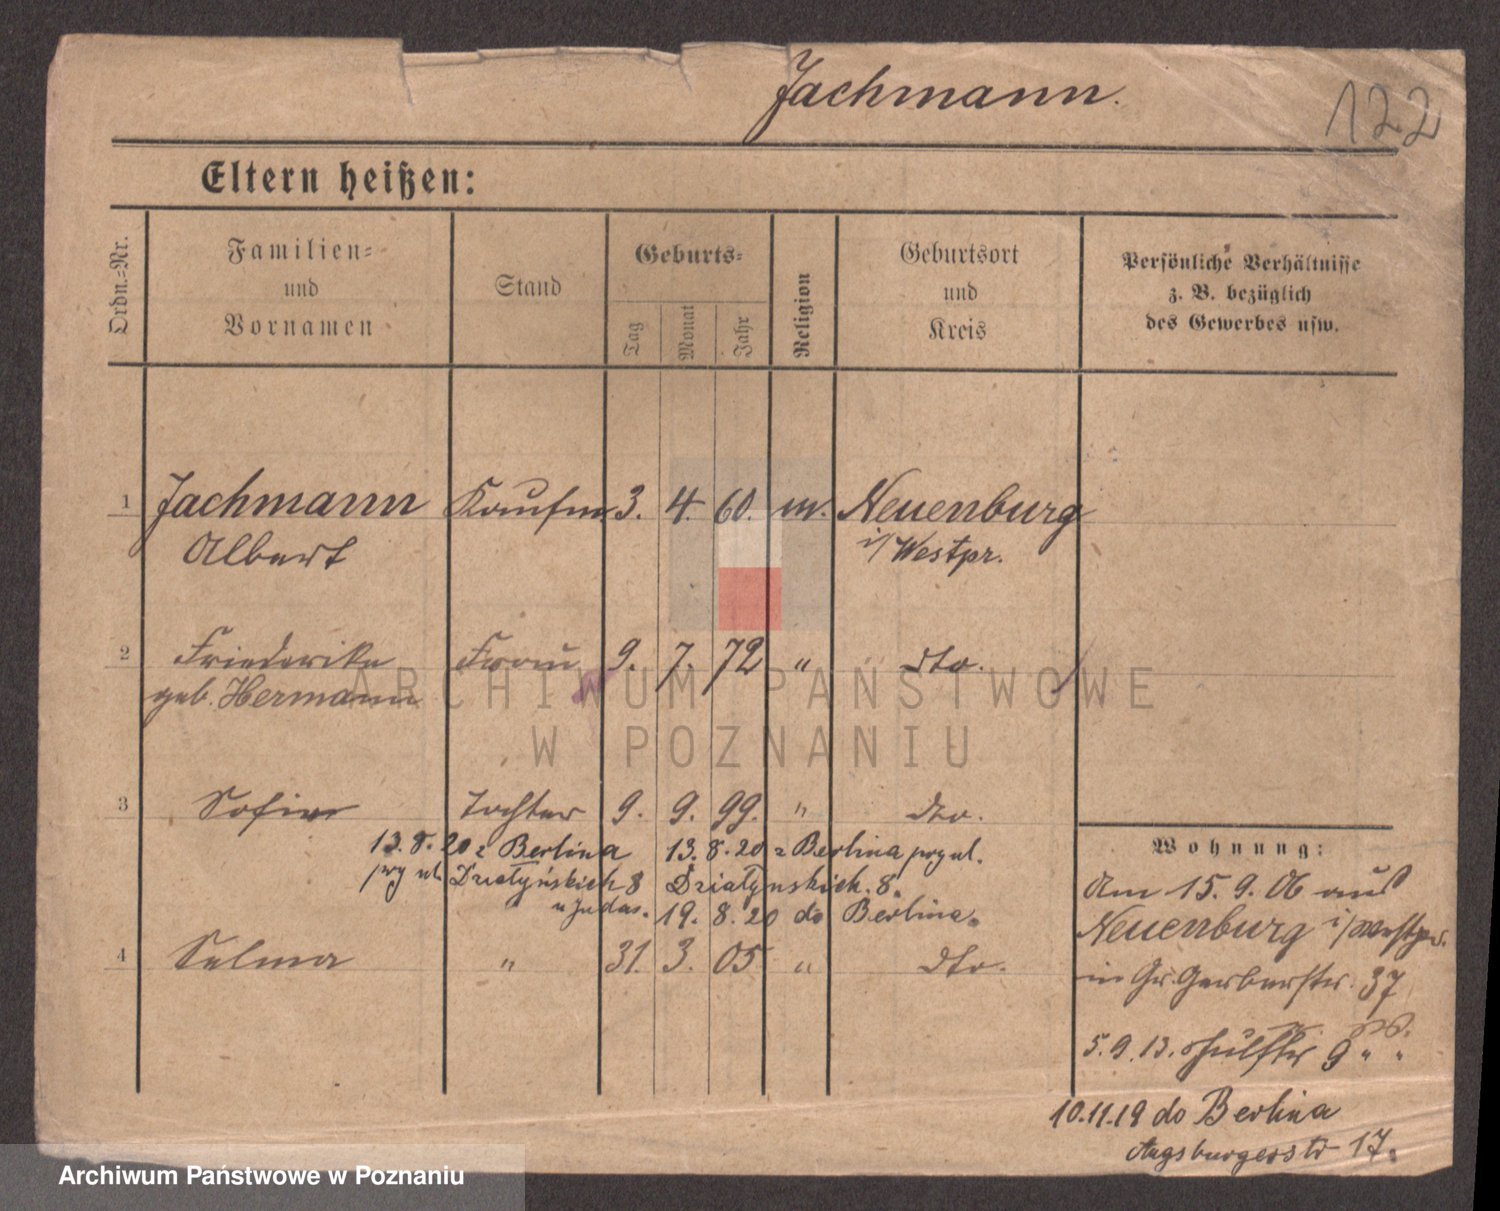 Jachmann.
122
Eltern heißen:
Ordn.-Nr.
Familien-
und
Vornamen
Stand
Geburts-
Tag
Monat
Jahr
Religion
Geburtsort
und
Kreis
Persönliche Verhältnisse
z. B. bezüglich
des Gewerbes usw.
1 Jachmann Kaufm 3. 4. 60. m. Neuenburg
Albert i/ Westpr.
2 Friederike Frau 9. 7. 72 " dto.
geb. Hermann
3 Sofie Tochter 9. 9. 99. " dto.
13.8.20 z Berlina 13.8.20 z Berlina przy ul.
przy ul. Działyńskich 8 Działynskich 8.
19.8.20 do Berlina.
4 Selma " 31. 3. 05 " dto.
Wohnung:
Am 15.9.06 aus
Neuenburg i/Westpr.
in Gr. Gerberstr. 37
5.9.13.
10.11.19 do Berlina
Augsburgerstr 17.
ARCHIWUM PAŃSTWOWE
W POZNANIU
Archiwum Państwowe w Poznaniu